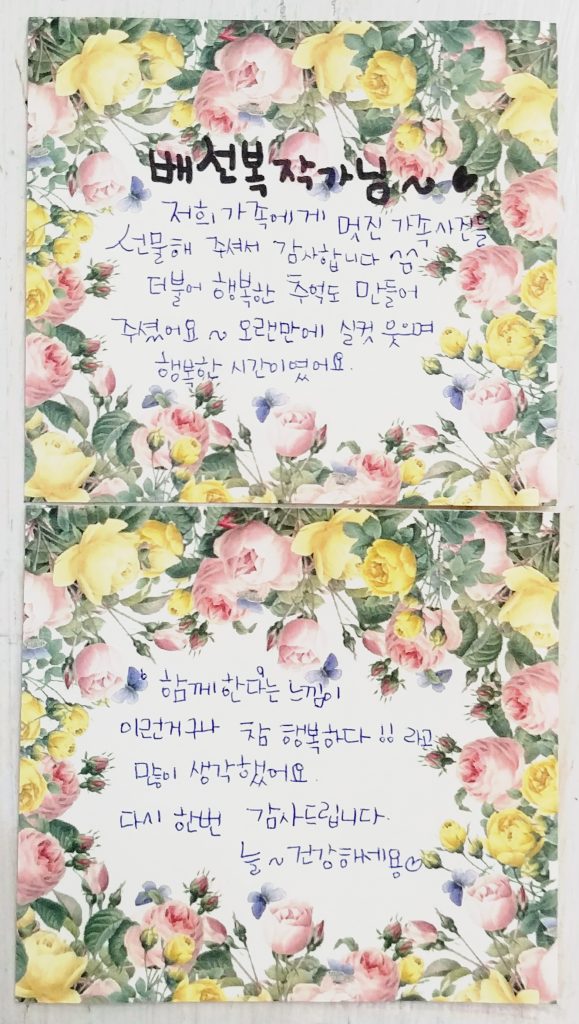 배선복 작가님~♥
저희 가족에게 멋진 가족사진을
선물해 주셔서 감사합니다 ^^
더불어 행복한 추억도 만들어
주셨어요~ 오랜만에 실컷 웃으며
행복한 시간이였어요.
'함께한다'는 느낌이
이런거구나 참 행복하다!! 라고
많이 생각했어요.
다시 한번 감사드립니다.
늘~건강해세용♡